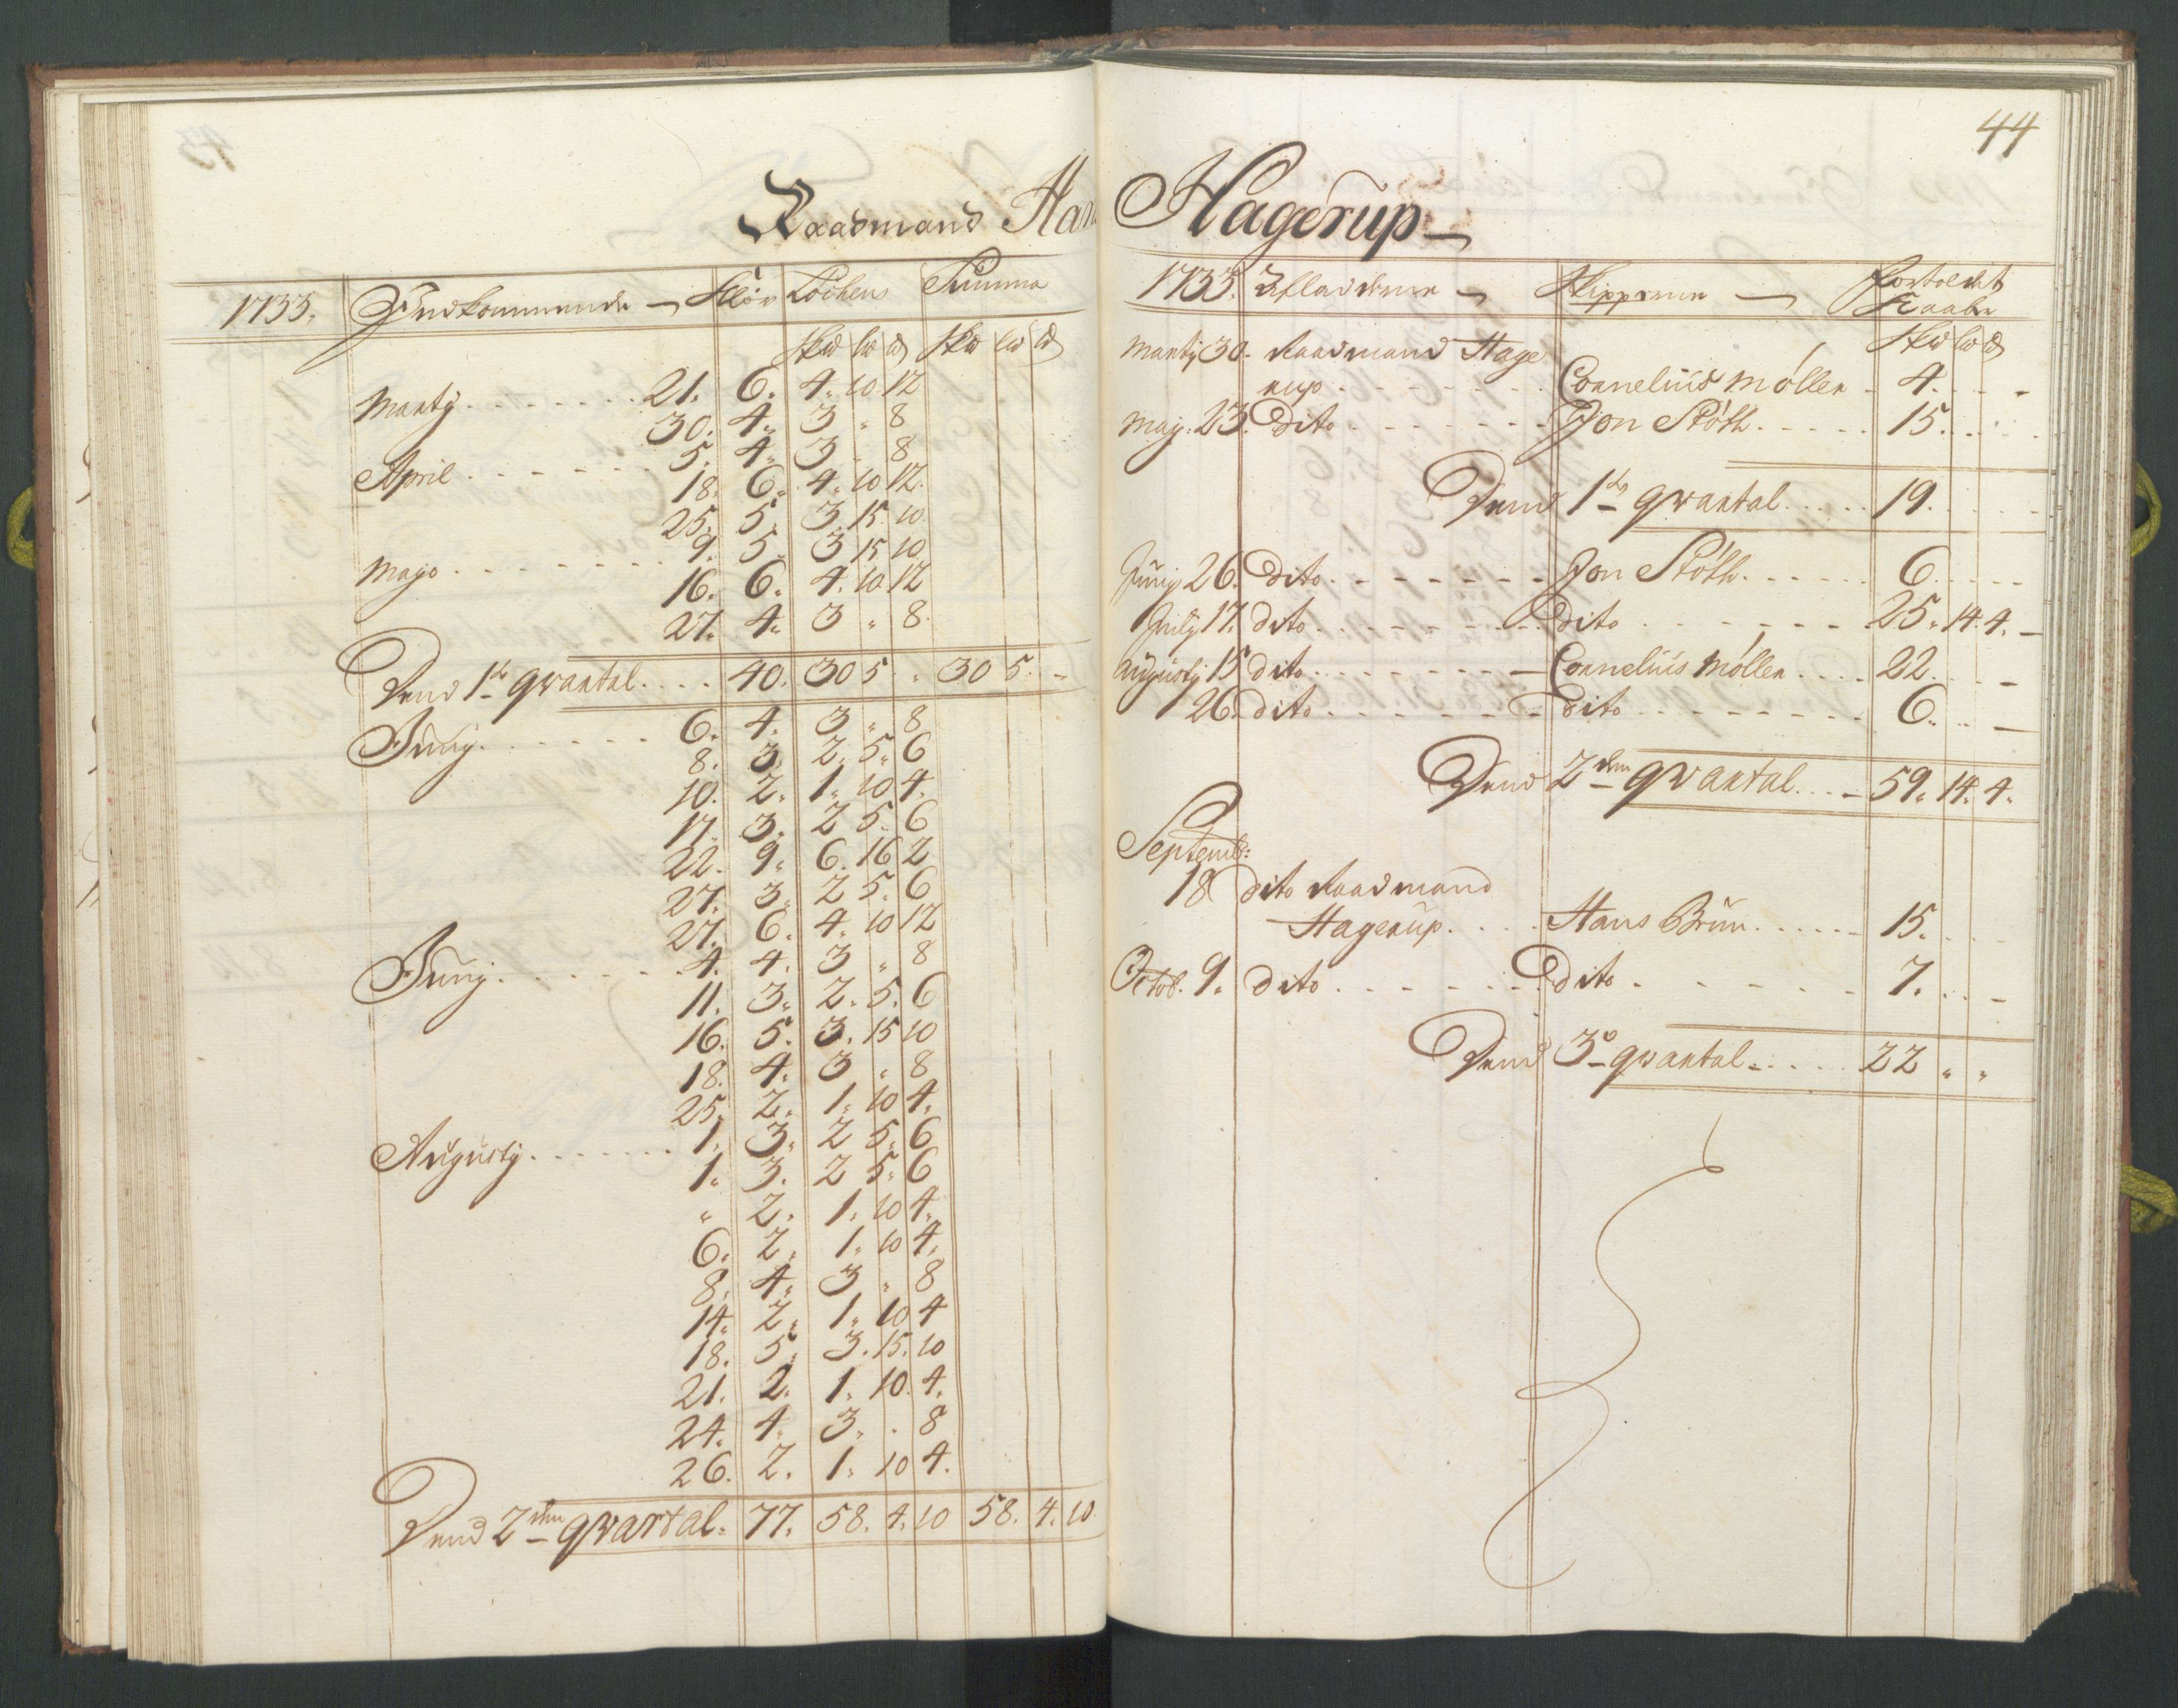 44
Raadmand Han Hagerup
1733. Indkommende Slør Lochens Summa
Sk℔ L℔ ℔ Sk℔ L℔ ℔
Marty . . . . . . . 21. 6. 4. 10. 12
30. 4. 3 „ 8
April . . . . . . 5. 4. 3 „ 8
18. 6. 4. 10 12.
25. 5. 3. 15. 10.
Mayo . . . . . . . 9. 5. 3 15 10
16. 6. 4. 10. 12
27. 4. 3 „ 8.
Dend 1te qvartal . . . . 40. 30 5 „ 30 5. „
Juny . . . . . . 6. 4. 3 „ 8
8. 3. 2. 5. 6
10. 2. 1. 10 4.
17. 3. 2 5. 6
22. 9. 6. 16 2
27. 3. 2 5. 6
27. 6. 4. 10 12
Juny . . . . . . . 4. 4. 3 „ 8
11. 3. 2. 5. 6
16. 5. 3. 15 10
18. 4. 3 „ 8
25. 2. 1. 10 4.
Augusty . . . . . . . 1. 3. 2 5. 6
1. 3. 2 5. 6
„ 2. 1. 10 4.
6. 2. 1. 10 4.
8. 4. 3 „ 8
14. 2. 1. 10 4
18. 5. 3. 15. 10
21. 2. 1. 10. 4.
24. 4. 3. . 8
26. 2. 1. 10 4.
Dend 2den qvartal. 77. 58. 4. 10 58. 4. 10
1733. Skipperne Fortoldet
Raabe
Sk℔ L℔ ℔
Marty 30. Raadmand Hage
rup . . . . . . . Cornelius Møller . 4. . . .
May. 23. Dito . . . . . . . Jon Stöth . . . . . 15. . . .
Dend 1te qvartal . . . . . 19. . . .
Juny 26. Dito . . . . . . . Jon Stöth . . . . . 6. . . .
July 17. dito . . . . . . . Dito . . . . . . . 25. 14. 4.
Augusty 15 dito . . . . . . . Cornelius Møller . . . . 22. . . .
26. dito . . . . . . . Dito . . . . . . . 6. . . .
Dend 2den qvartal . . . 59. 14. 4.
Septemb:
18 dito Raadmand
Hagerup . . . . Hans Brün . . . . . 15. . . .
Octob. 9. dito . . . . . . . Dito . . . . . . 7. . . .
Dend 3e qvartal . . . . . 22 „ „